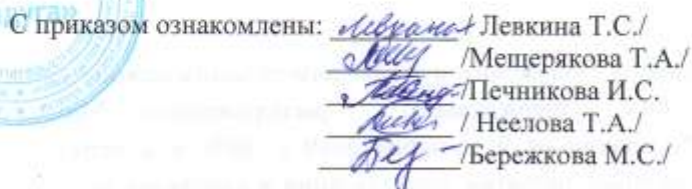 С приказом ознакомлены: Левкина Т.С./
/Мещерякова Т.А./
/Печникова И.С.
/ Неелова Т.А./
/Бережкова М.С./